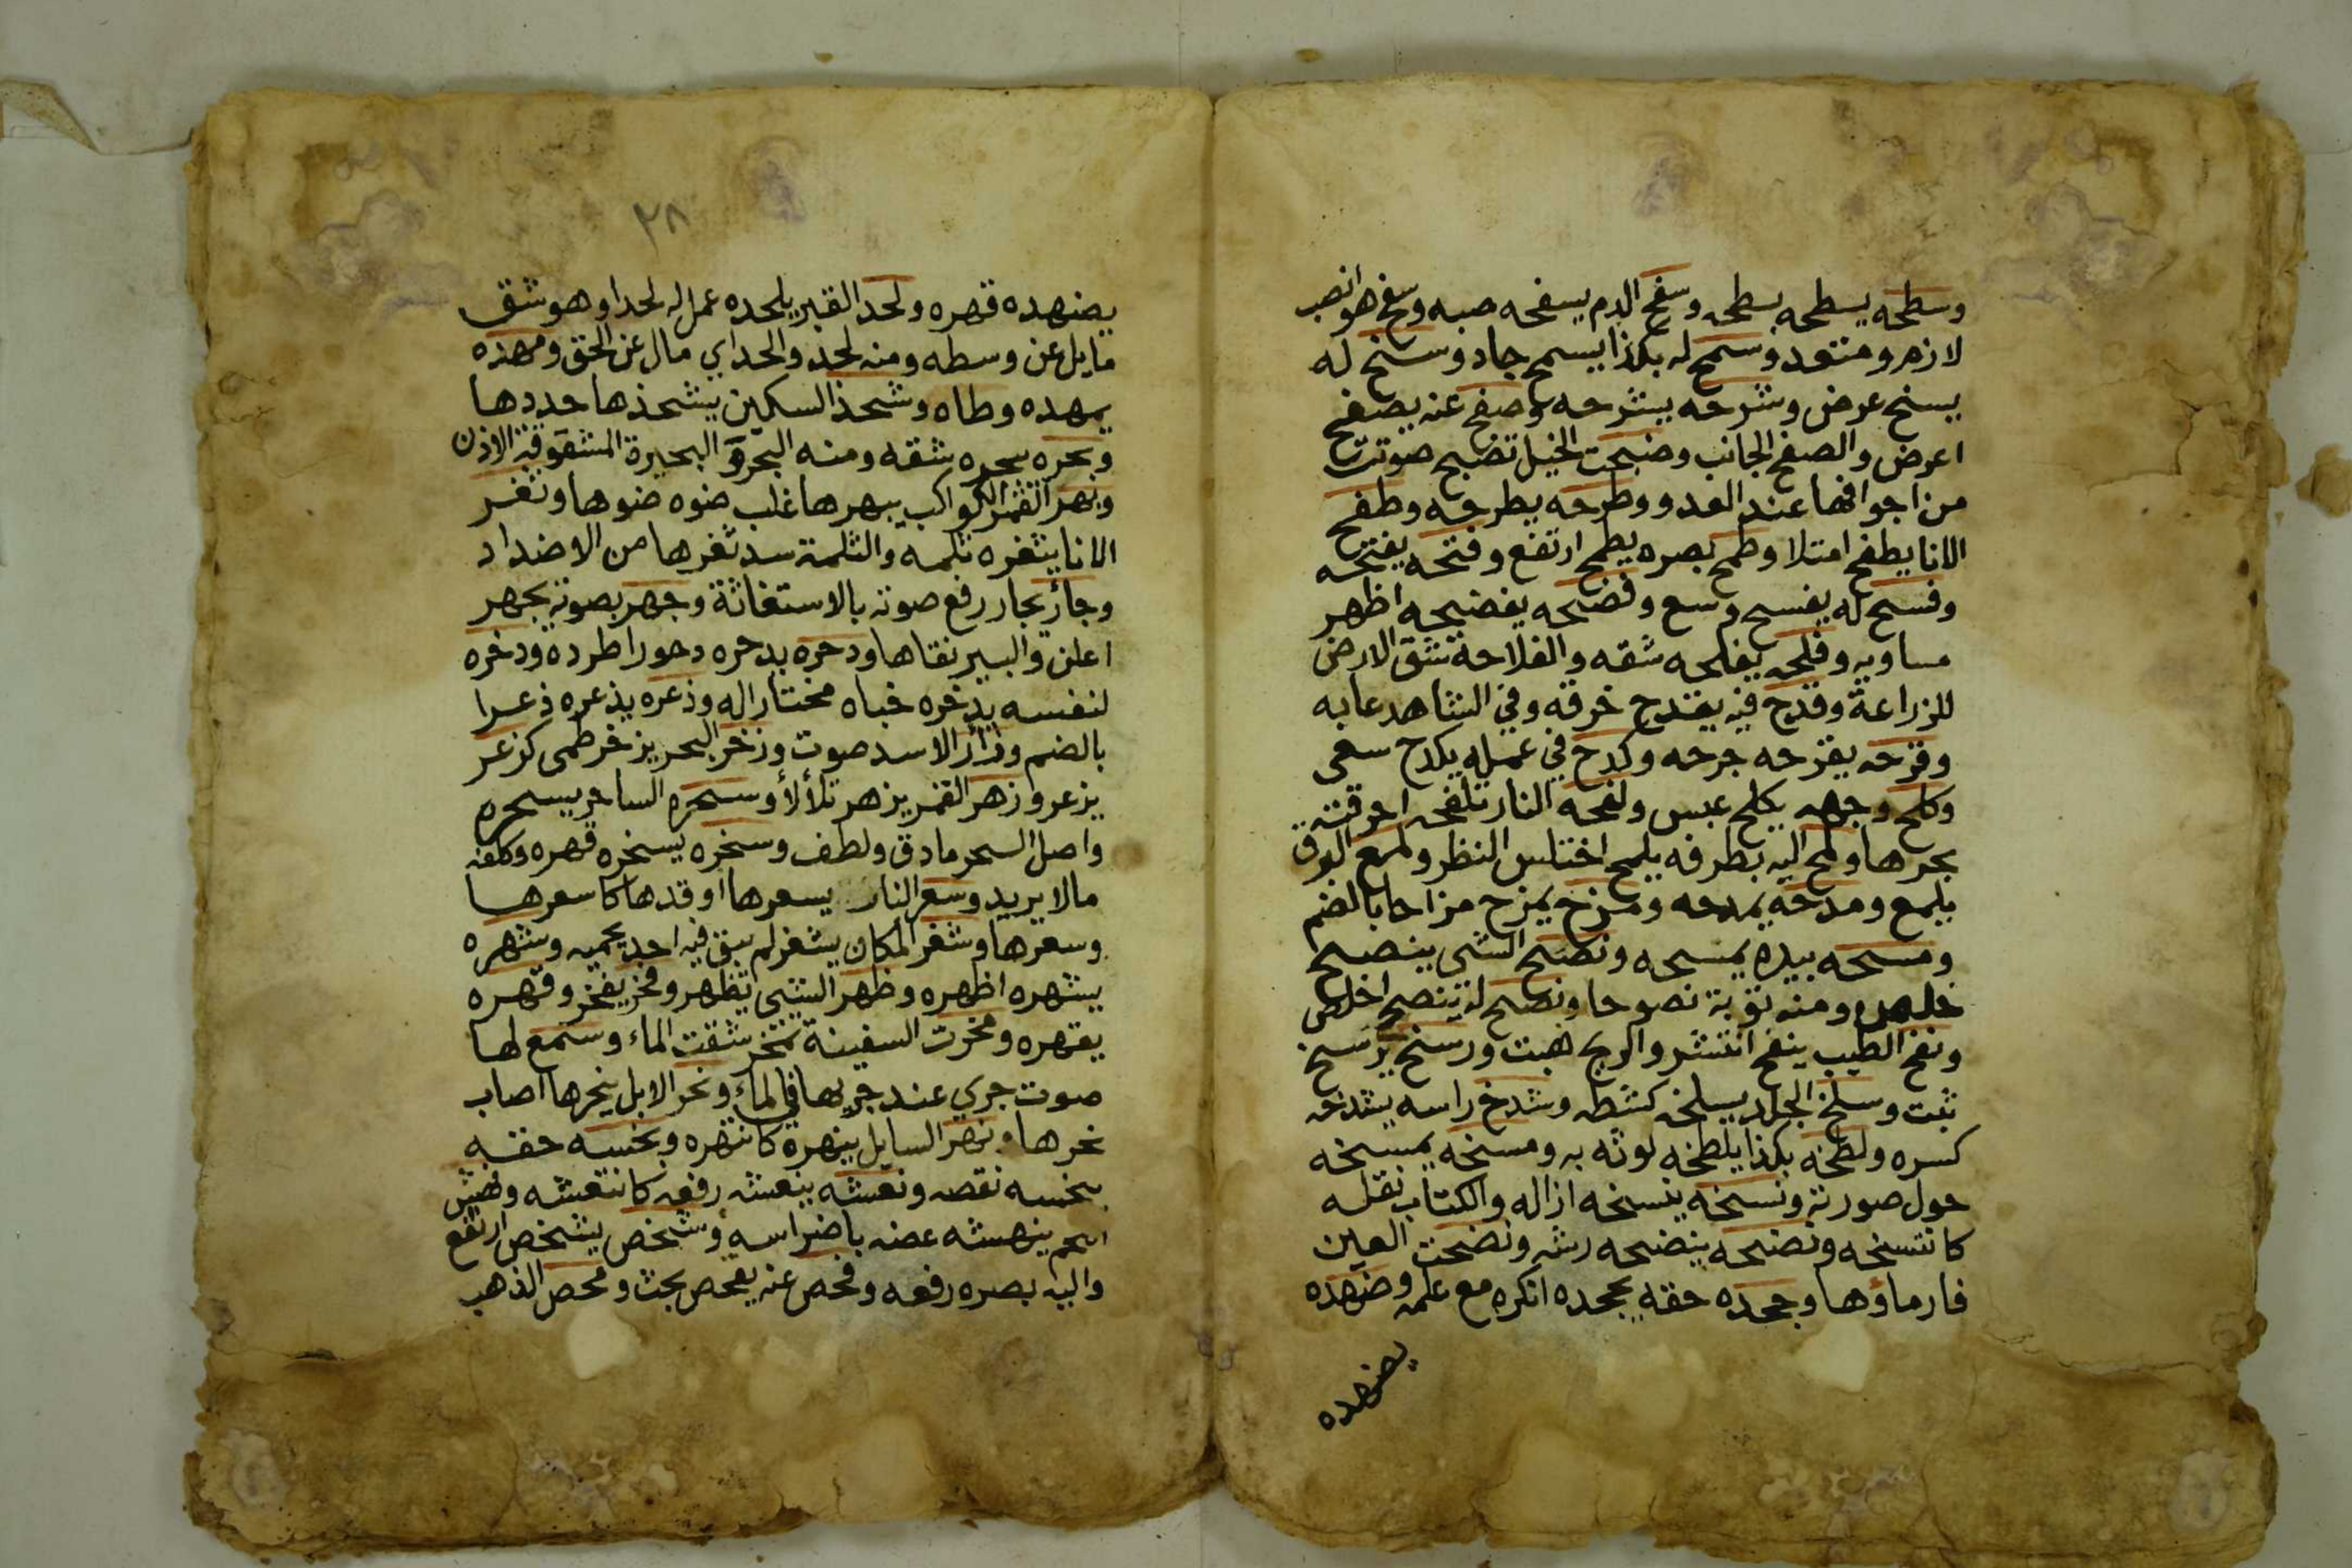 وسطحه يسطحه بسطحه وسفح الدم يسفحه صبه وسفح هو انصب
لازم ومتعد وسمح له بكذا يسمح جاد وسنح له
يسنح عرض وشرحه يشرحه وصفح عنه يصفح
اعرض والصفح الجانب وضبحت الخيل تضبح صوتت
من اجوافها عند العدو وطرحه يطرحه وطفح
الانا يطفح امتلا وطمح بصره يطمح ارتفع وفتحه يفتحه
وفسح له يفسح وسع وفضحه يفضحه اظهر
مساويه وفلحه يفلحه شقه والفلاحة تشق الارض
للزراعة وقدح فيه يقدح خرقه وفي الشاهد عابه
وقرحه يقرحه جرحه وكدح في عمله يكدح سعى
وكلح وجهه يكلح عبس ولفحه النار تلفحه احرقته
بحرها ولمح اليه بطرفه يلمح اختلس النظر ولمع البرق
يلمع ومدحه يمدحه ومزح يمزح مزاحا بالضم
ومسحه بيده يمسحه ونصح الشي ينصح
خلص ومنه توبة نصوحا ونصح له ينصح اخلص
ونفح الطيب ينفح انتشر والريح هبت ورسخ يرسخ
ثبت وسلخ الجلد يسلخه كشطه وشدخ راسه يشدخه
كسره ولطخه بكذا يلطخه لوثه به ومسخه يمسخه
حول صورته ونسخه ينسخه ازاله والكتاب نقله
كانتسخه ونضحه ينضحه رشه ونضخت العين
فار ماؤها وجحده حقه يجحده انكره مع علمه وضهده
يضهده
٢٨
يضهده قهره ولحد القبر يلحده عمل له لحدا وهو شق
مايل عن وسطه ومنه لحد والحد اي مال عن الحق ومهده
يمهده وطاه وشحذ السكين يشحذها حددها
وبحره يبحره شقه ومنه البحر و البحيرة المشقوقة الاذن
وبهر القمر الكواكب يبهرها غلب ضوه ضوها وثغر
الانا يثغره ثلمه والثلمة سد ثغرها من الاضداد
وجأر يجار رفع صوته بالاستغاثة وجهر بصوته يجهر
اعلن والبير نقاها ودحره يدحره دحورا طرده وذخره
لنفسه يذخره خباه مختارا له وذعره يذعره ذعرا
بالضم وزأر الاسد صوت وزخر البحر يزخر طمى كزعر
يزعر وزهر القمر يزهر تلألأ وسحره الساحر يسحره
واصل السحر مادق ولطف وسخره يسخره قهره وكلفه
مالا يريد وسعر النار يسعرها اوقدها كاسعرها
وسعرها وشغر المكان يشغر لم يبق فيه احد يحميه وشهره
يشهره اظهره وظهر الشي يظهر وفخر يفخر وقهره
يقهره ومخرت السفينة تمخر شقت الماء وسمع لها
صوت جري عند جريها في الماء ونحر الابل ينحرها اصاب
نحرها ونهر السايل ينهره كانتهره وبخسه حقه
يبخسه نقصه ونعشه ينعشه رفعه كانتعشه ونهش
اللحم ينهشه عضه باضراسه وشخص يشخص ارتفع
واليه بصره رفعه وفحص عنه يفحص بحث ومحص الذهب